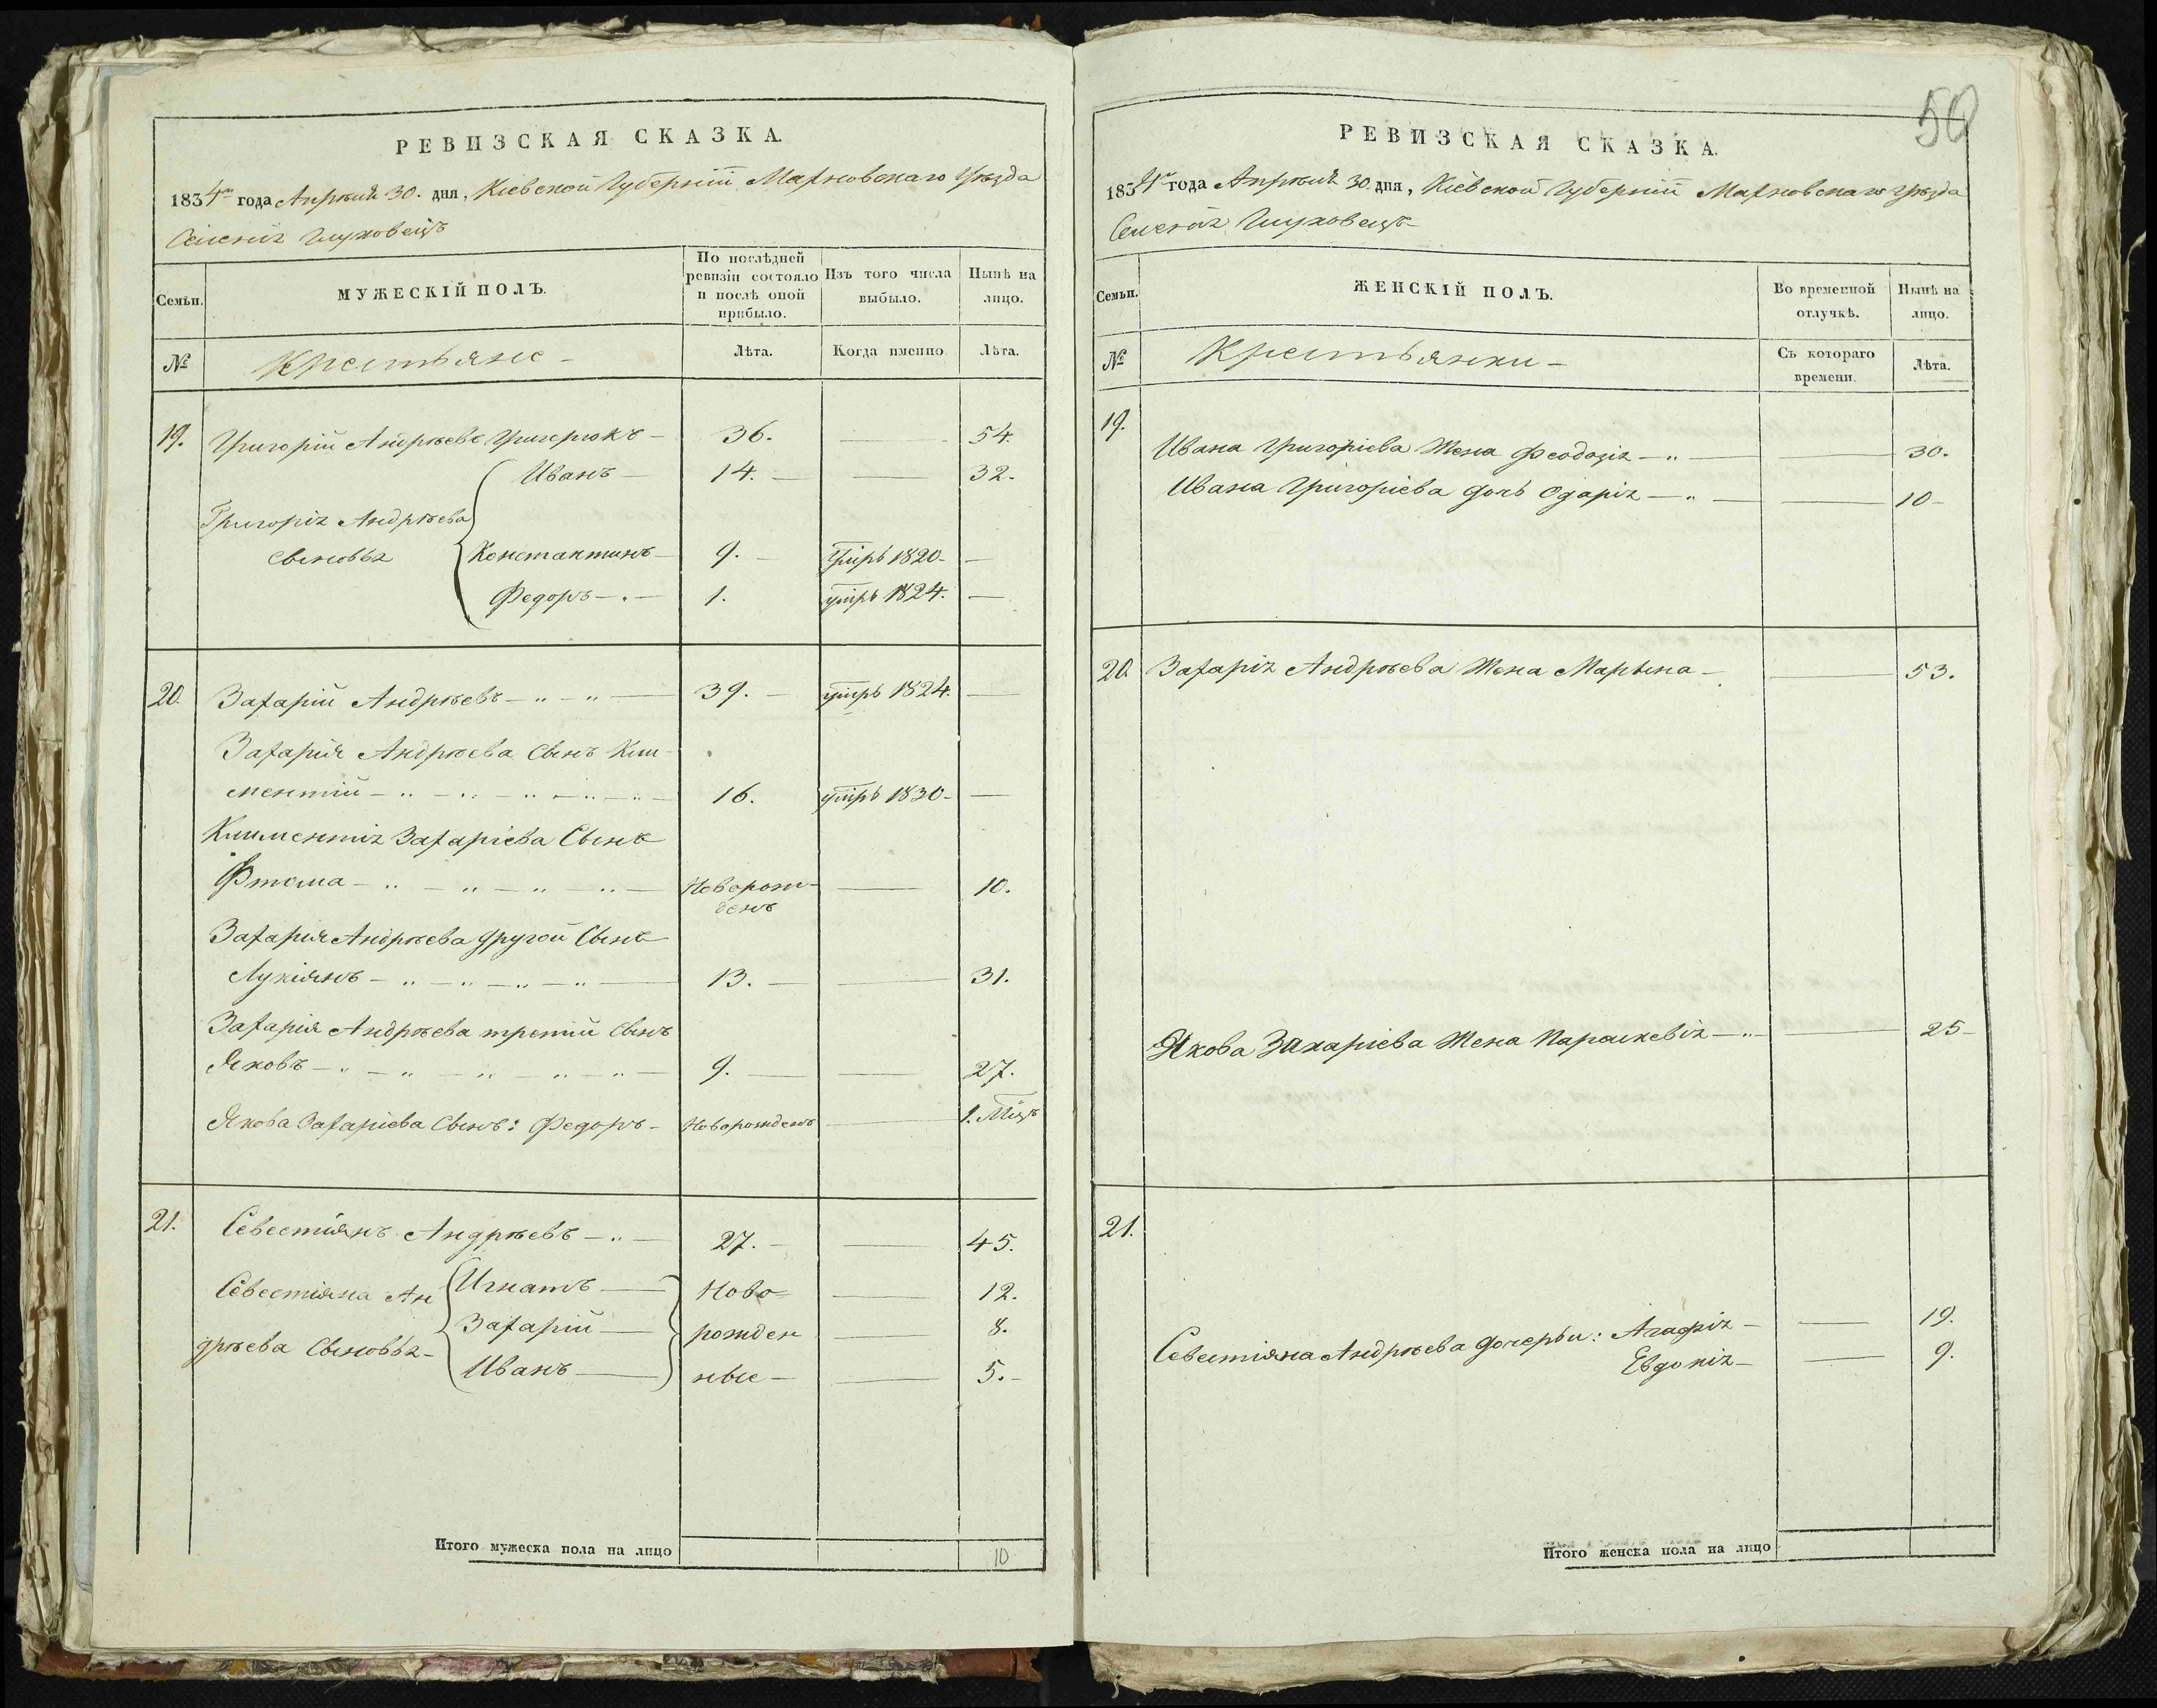 РЕВИЗСКАЯ СКАЗКА.
1834го года Апрѣля 30. дня, Кіевской Губерніи Махновскаго Уѣзда
Селенія Глуховецъ
Семьи.
МУЖЕСКІЙ ПОЛЪ.
По послѣдней ревизіи состояло и послѣ оной прибыло.
Изъ того числа выбыло.
Нынѣ на лицо.
№
Крестьяне-
Лѣта.
Когда именно.
Лѣта.
19. Григорій Андрѣевъ Григерюкъ - 36. 54.
Иванъ - 14. 32.
Григорія Андрѣева
сыновья
Константинъ - 9. умръ 1820 -
Федоръ - 1. умръ 1824.
20. Захарій Андрѣевъ - 39. умръ 1824.
Захарія Андрѣева Сынъ Кли-
ментій - 16. умръ 1830 -
Климентія Захаріева Сынъ
Фтома - Новорож-
денъ 10.
Захарія Андрѣева другой Сынъ
Лукіянъ - 13. 31.
Захарія Андрѣева третій Сынъ
Яковъ - 9. 27.
Якова Захаріева Сынъ: Федоръ - Новорожденъ 1. Мцъ
21. Севестіянъ Андрѣевъ - 27. 45.
Севестіяна Ан
дрѣева Сыновья -
Игнатъ - Ново= 12.
Захарій - рожден 8.
Иванъ - ные - 5. -
Итого мужеска пола на лицо 10
50
РЕВИЗСКАЯ СКАЗКА.
1834го года Апрѣля 30. дня, Кіевской Губерніи Махновскаго Уѣзда
Селенія Глуховецъ
Семьи.
ЖЕНСКІЙ ПОЛЪ.
Во временной отлучкѣ.
Нынѣ на лицо.
№
Крестьянки -
Съ котораго времени.
Лѣта.
19.
Ивана Григоріева Жена Феодозія - 30.
Ивана Григоріева дочь Одарія - 10 -
20. Захарія Андрѣева Жена Марьяна - 53.
Якова Захаріева Жена Параскевія - 25 -
21.
Севестіяна Андрѣева дочерьи: Агафія - 19.
Евдокія - 9.
Итого женска пола на лицо